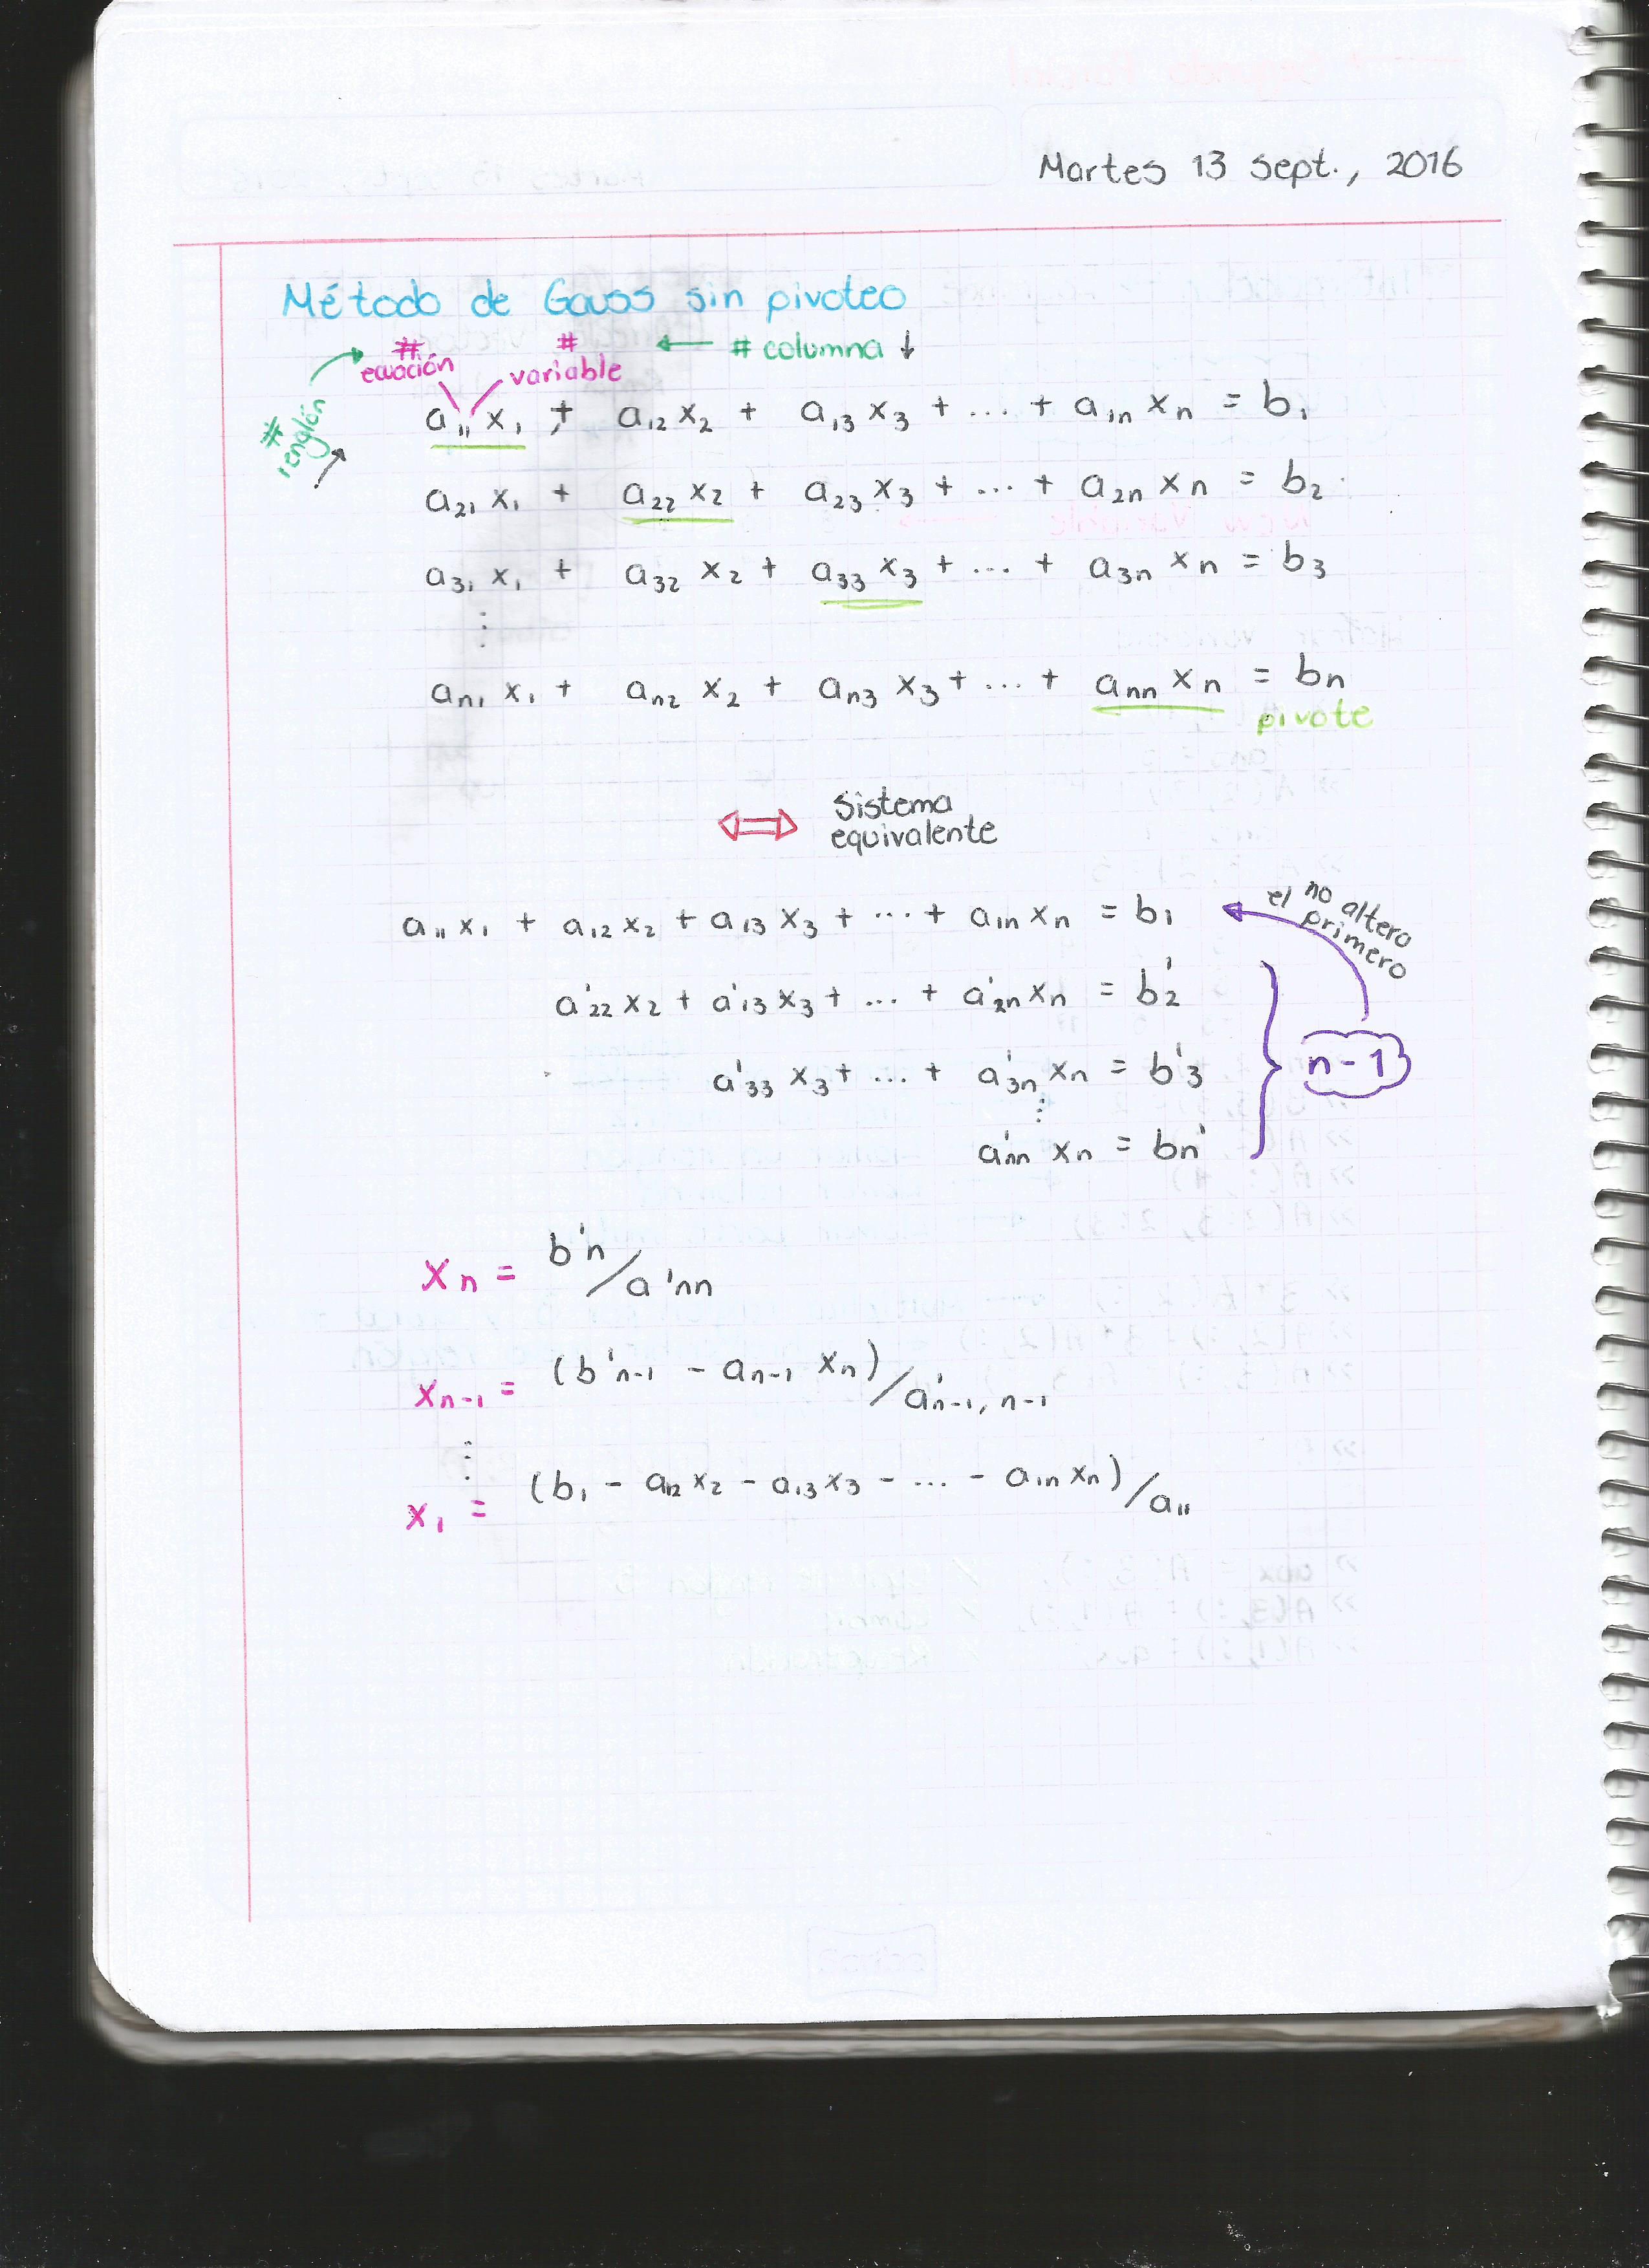 Martes 13 sept., 2016
Método de Gauss sin pivoteo
# ecuación # variable ← # columna ↓
# renglón
a₁₁ x₁ + a₁₂ x₂ + a₁₃ x₃ + ... + a₁ₙ xₙ = b₁
a₂₁ x₁ + a₂₂ x₂ + a₂₃ x₃ + ... + a₂ₙ xₙ = b₂
a₃₁ x₁ + a₃₂ x₂ + a₃₃ x₃ + ... + a₃ₙ xₙ = b₃
⋮
aₙ₁ x₁ + aₙ₂ x₂ + aₙ₃ x₃ + ... + aₙₙ xₙ = bₙ
pivote
⇔ Sistema
equivalente
a₁₁ x₁ + a₁₂ x₂ + a₁₃ x₃ + ... + a₁ₙ xₙ = b₁
no altero
el primero
a'₂₂ x₂ + a'₁₃ x₃ + ... + a'₂ₙ xₙ = b'₂
a'₃₃ x₃ + ... + a'₃ₙ xₙ = b'₃
n-1
⋮
a'ₙₙ xₙ = bₙ'
xₙ = b'ₙ / a'ₙₙ
xₙ₋₁ = (b'ₙ₋₁ - aₙ₋₁ xₙ) / a'ₙ₋₁, ₙ₋₁
⋮
x₁ = (b₁ - a₁₂ x₂ - a₁₃ x₃ - ... - a₁ₙ xₙ) / a₁₁